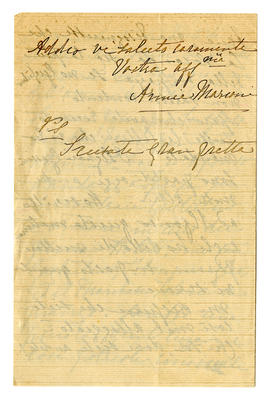 Addio vi saluto caramente
Vostra aff
Annie Marconi
PS
Scusate gran fretta